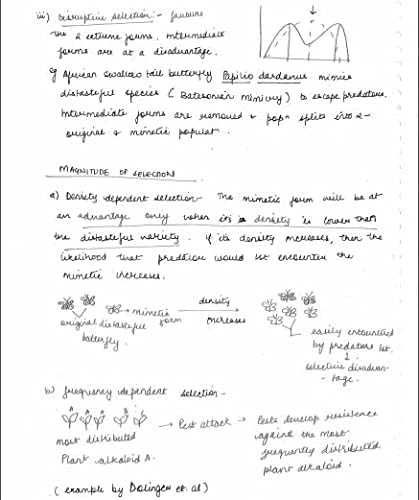 iii) Disruptive selection - favours
the 2 extreme forms. Intermediate
forms are at a disadvantage.
eg African swallow tail butterfly Papilio dardanus mimics
distasteful species (Batesonian mimicry) to escape predators.
Intermediate forms are removed & popn splits into 2-
original & mimetic populatn.
MAGNITUDE OF SELECTION
a) Density dependent selection- The mimetic form will be at
an advantage only when its density is lower than
the distasteful variety. If its density increases, then the
likelihood that predators would 1st encounter the
mimetic increases.
mimetic form
original distasteful
butterfly.
density
increases
easily encountered
by predators 1st.
selective disadvan-
-tage.
b) frequency dependent selection -
A A A B C
most distributed
Plant alkaloid A.
Pest attack
Pests develop resistance
against the most
frequently distributed
plant alkaloid.
(example by Dolinger et al)